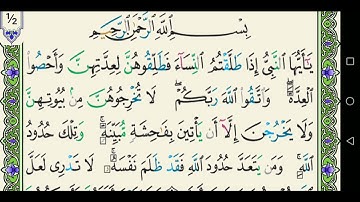 1/2
بِسْمِ اللَّهِ الرَّحْمَٰنِ الرَّحِيمِ
يَٰٓأَيُّهَا ٱلنَّبِىُّ إِذَا طَلَّقْتُمُ ٱلنِّسَآءَ فَطَلِّقُوهُنَّ لِعِدَّتِهِنَّ وَأَحْصُوا۟
ٱلْعِدَّةَ ۖ وَٱتَّقُوا۟ ٱللَّهَ رَبَّكُمْ ۖ لَا تُخْرِجُوهُنَّ مِنۢ بُيُوتِهِنَّ
وَلَا يَخْرُجْنَ إِلَّآ أَن يَأْتِينَ بِفَٰحِشَةٍ مُّبَيِّنَةٍ ۚ وَتِلْكَ حُدُودُ
ٱللَّهِ ۚ وَمَن يَتَعَدَّ حُدُودَ ٱللَّهِ فَقَدْ ظَلَمَ نَفْسَهُۥ ۚ لَا تَدْرِى لَعَلَّ